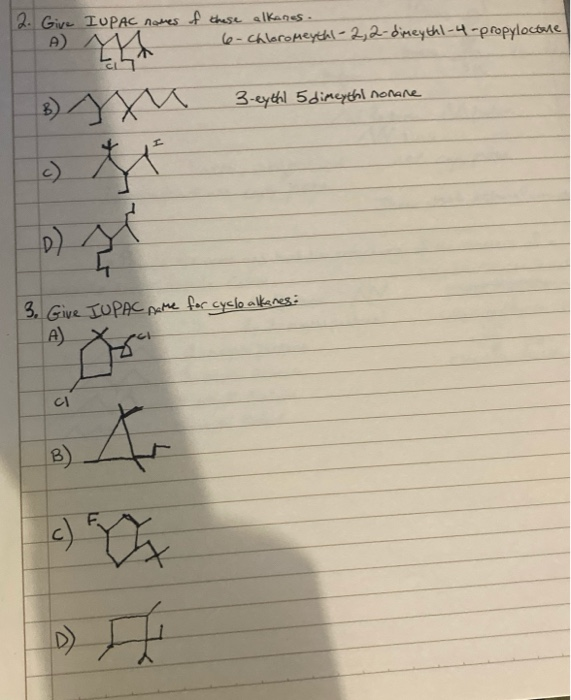 2. Give IUPAC names of these alkanes.
A) 6-chloromeythl-2,2-dimeythl-4-propyloctane
Cl
B) 3-eythl 5dimeythl nonane
C) I
D)
3. Give IUPAC name for cycloalkanes:
A) Cl
Cl
B)
C) F
D)